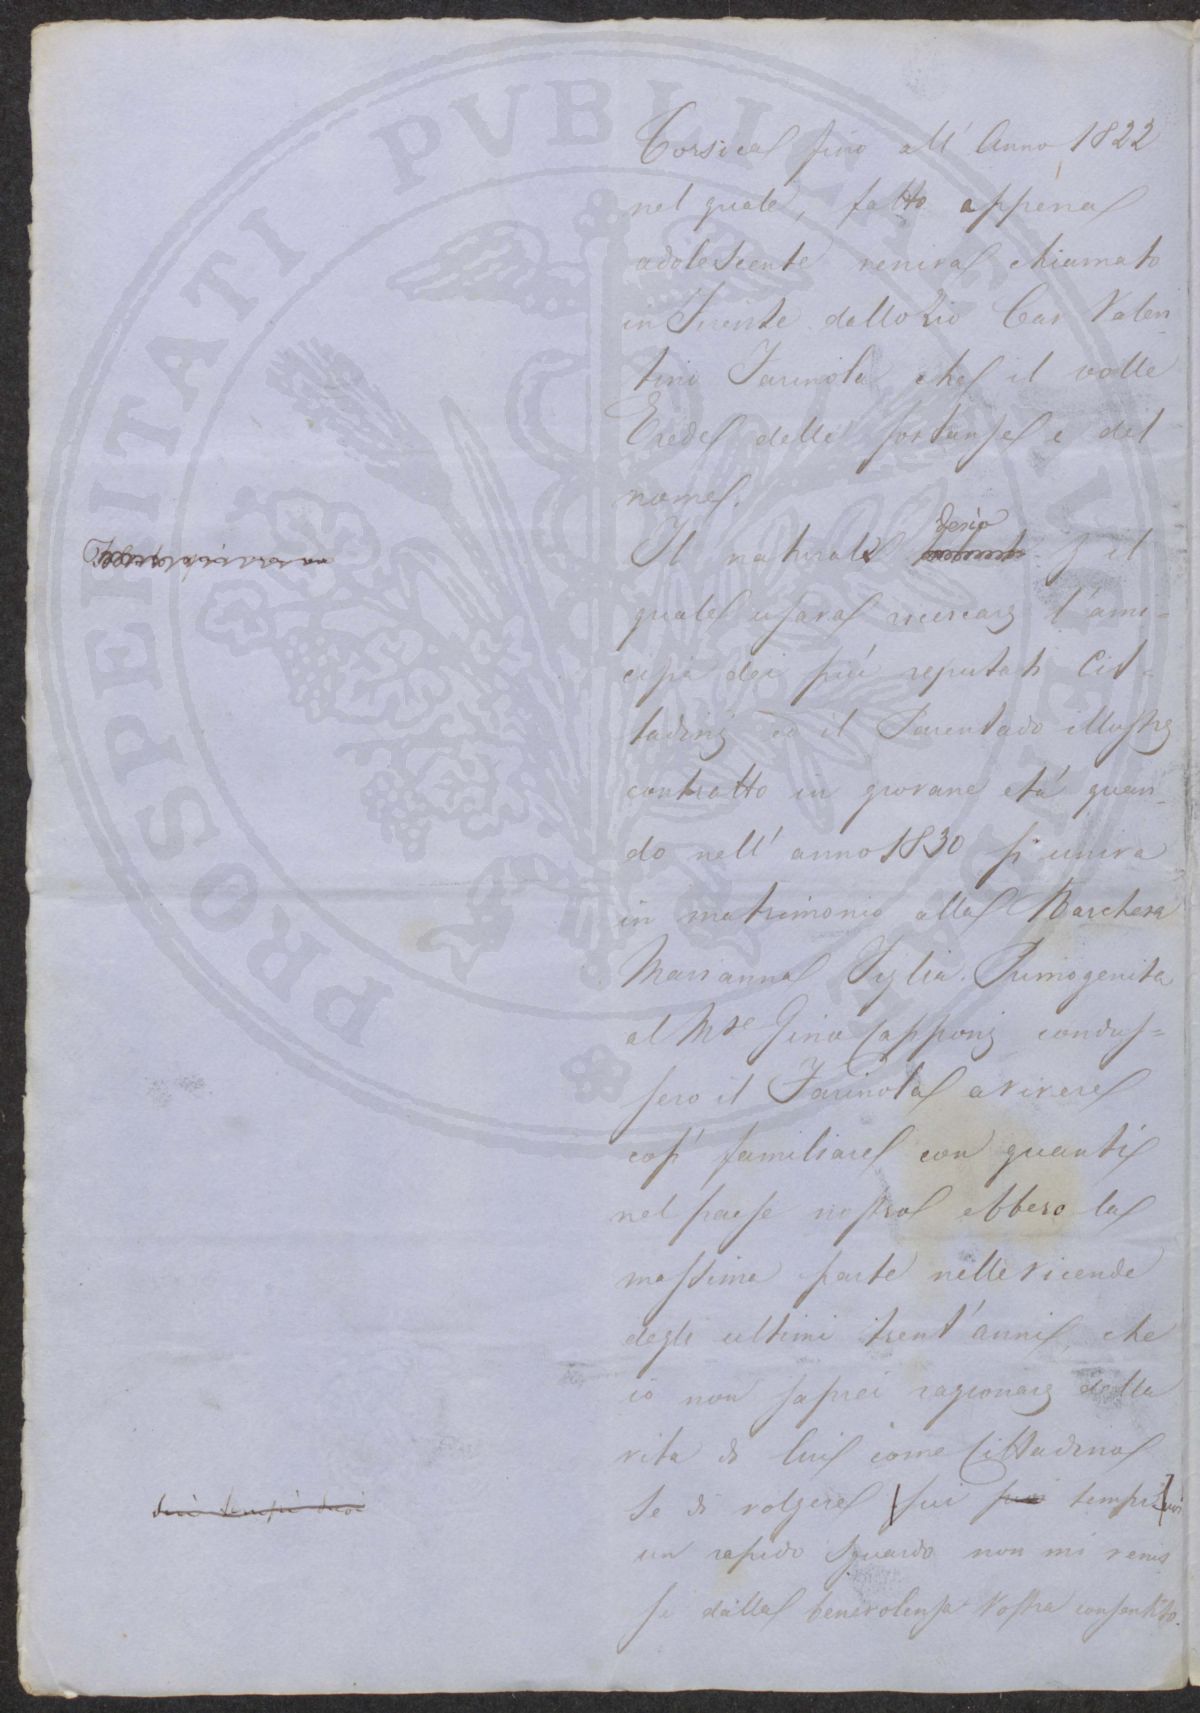 PROSPERITATI PVBLICAE
Corsica fino all' Anno 1822
nel quale, fatto appena
adolescente veniva chiamato
in Firenze dallo Zio Cav Valen-
tino Farinola che il volle
Erede delle sostanze e del
nome.
Il naturale desio
il
quale usava ricercare l'ami=
cizia dei più reputati Cit=
tadini ed il Parentado illustre
contratto in giovane età quan-
do nell' anno 1830 si univa
in matrimonio alla Marchesa
Marianna Figlia Primogenita
al Mse Gino Capponi condus=
sero il Farinola a vivere
così familiare con quanti
nel paese nostro ebbero la
massima parte nelle vicende
degli ultimi trent'anni, che
io non saprei ragionare della
vita di lui come Cittadino
se di volgere sui tempi suoi
dei tempi suoi
un rapido sguardo non mi venis
se dalla benevolenza Vostra consentito.